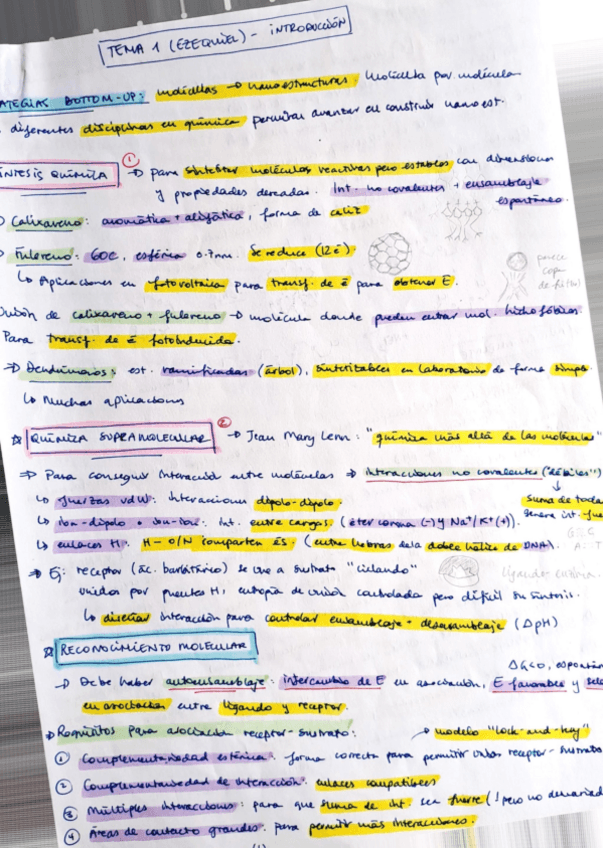 TEMA 1 (EZEQUIEL) - INTRODUCCIÓN
ATEGIAS BOTTOM-UP: moléculas → nanoestructuras. Molécula por molécula
diferentes disciplinas en química permitirán avanzar en construir nanoest.
ÍNTESIS QUÍMICA ① → para sintetizar moléculas reactivas pero estables con dimensiones
y propiedades deseadas. Int. no covalentes + ensamblaje
espontáneo.
Calixareno: aromática + alifática, forma de caliz
Fulereno: 60C, esférica 0.7nm. Se reduce (12é)
parece
copa
de fútbol
↳ Aplicaciones en fotovoltaica para transf. de é para obtener E.
Unión de calixareno + fulereno → molécula donde pueden entrar mol. hidrofóbicas.
Para transf. de é fotoinducida.
→ Dendrímeros: est. ramificadas (árbol), sintetizables en laboratorio de forma simple.
↳ Muchas aplicaciones
QUÍMICA SUPRAMOLECULAR ② → Jean Mary Lenn: "química más allá de las moléculas"
⇒ Para conseguir interacción entre moléculas → interacciones no covalentes ("débiles")
↳ fuerzas vdW: interacciones dipolo-dipolo.
Suma de toda
genera int. fue
↳ ion-dipolo o ion-ion: int. entre cargas. (éter corona (-) y Na⁺/K⁺ (+)).
↳ enlaces H: H-O/N comparten és. (entre hebras de la doble hélice de DNA).
G≡C
A=T
⇒ Ej: receptor (ác. barbitúrico) se une a sustrato "ciclando"
unidos por puentes H, entropía de unión controlada pero difícil su síntesis.
↳ diseñar interacción para controlar ensamblaje + desensamblaje (ΔpH)
RECONOCIMIENTO MOLECULAR
ΔG<0, espontán
→ Debe haber autoensamblaje: intercambio de E en asociación, E favorable y sele
en asociación entre ligando y receptor.
Requisitos para asociación receptor-sustrato: → modelo "lock-and-key"
① Complementariedad estérica: forma correcta para permitir unión receptor-sustrato
② Complementariedad de interacción: enlaces compatibles
③ Múltiples interacciones: para que suma de int. sea fuerte (! pero no demasiad
④ Áreas de contacto grandes: para permitir más interacciones.